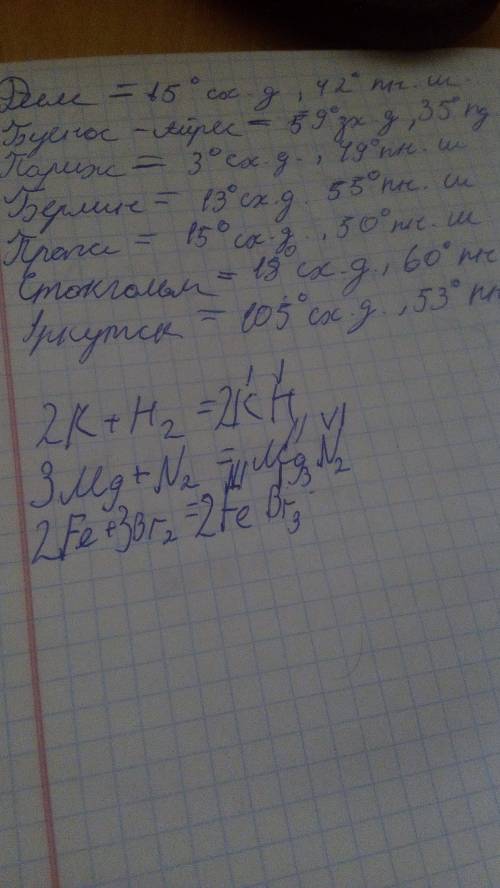 = 15° сх. д., 42° пн. ш.
Буенос-Айрес = 59° зх. д., 35° пд
Париж = 3° сх. д., 49° пн. ш
Берлин = 13° сх. д. 55° пн. ш
= 15° сх. д., 50° пн. ш
Стокгольм = 18° сх. д., 60° пн
Іркутск = 105° сх. д., 53° пн
2K + H₂ = 2KᴵHᴵ
3Mg + N₂ = Mg₃N₂
2Fe + 3Br₂ = 2FeᴵᴵᴵBr₃